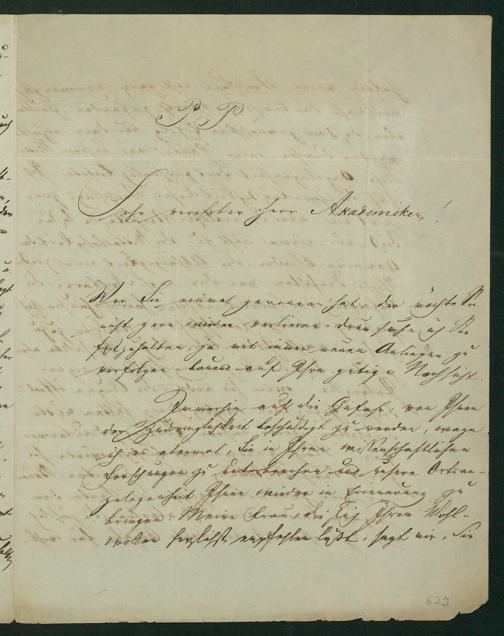 P. P.
Sehr verehrter Herr Akademiker!
Wer Sie einmal gewonnen hat, der möchte Sie
nicht gern wieder verlieren. Drum suche ich Sie
festzuhalten, ja mit immer neuen Anliegen zu
verfolgen bauend auf Ihre gütige Nachsicht.
Immerhin auf die Gefahr, von Ihnen
der Zudringlichkeit beschuldigt zu werden, wage
ich es abermal, Sie in Ihren wissenschaftlichen
Forschungen zu unterbrechen und unsere
gelegenheit Ihnen wieder in Erinnerung zu
bringen. Meine Frau, die sich Ihrem Wohl-
wollen herzlichst empfehlen läßt, sagt mir, Sie
629